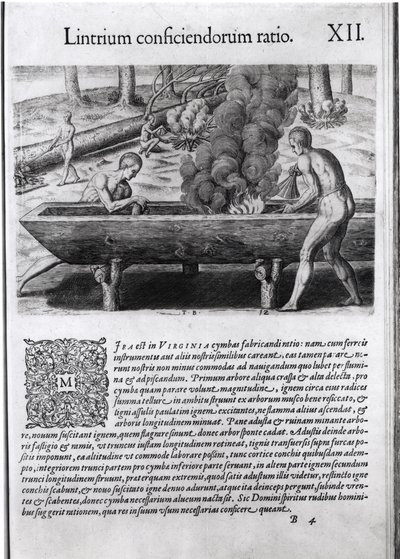 Lintrium conficiendorum ratio. XII.
T B 12
M
IRA est in VIRGINIA cymbas fabricandi ratio: nam cum ferreis
instrumentis aut aliis nostris similibus careant, eas tamen parare no-
runt nostris non minus commodas ad nauigandum quo lubet per flumi-
na & ad piscandum. Primum arbore aliqua crassa & alta delecta, pro
cymbæ quam parare volunt magnitudine, ignem circa eius radices
summa tellure in ambitu struunt ex arborum musco bene resiccato, &
ligni assulis paulatim ignem excitantes, ne flamma altius ascendat, &
arboris longitudinem minuat. Pæne adusta & ruinam minante arbo-
re, nouum suscitant ignem, quem flagrare sinunt donec arbor sponte cadat. Adustis deinde arbo-
ris fastigio & ramis, vt truncus iustam longitudinem retineat, tignis transuersis supra furcas po-
sitis imponunt, ea altitudine vt commode laborare possint, tunc cortice conchis quibusdam adem-
pto, integriorem trunci partem pro cymbæ inferiore parte seruant, in altera parte ignem secundum
trunci longitudinem struunt, præterquam extremis, quod satis adustum illis videtur, restincto igne
conchis scabunt, & nouo suscitato igne denuo adurunt, atque ita deinceps pergunt, subinde vren-
tes & scabentes, donec cymba necessarium alueum nacta sit. Sic Domini spiritus rudibus homini-
bus suggerit rationem, qua res in suum vsum necessarias conficere queant.
B 4